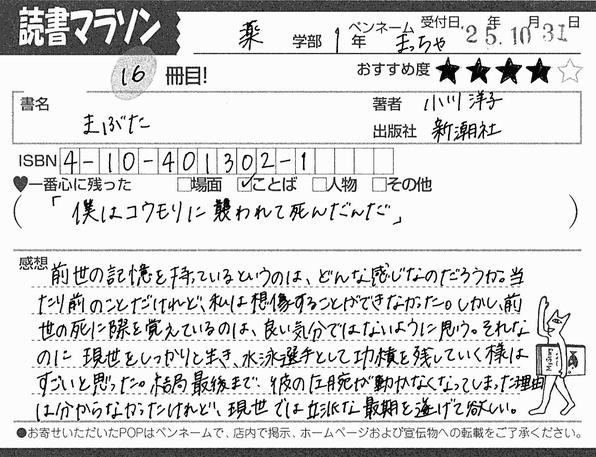 読書マラソン
薬 学部 1 年 ペンネーム まっちゃ 受付日 '25年10月31日
16 冊目! おすすめ度 ★★★★☆
書名 まぶた 著者 小川洋子
出版社 新潮社
ISBN 4-10-401302-1
♥一番心に残った □場面 ☑ことば □人物 □その他
(「僕はコウモリに襲われて死んだんだ」)
感想 前世の記憶を持っているというのは、どんな感じなのだろうか。当
たり前のことだけれど、私は想像することができなかった。しかし、前
世の死に際を覚えているのは、良い気分ではないように思う。それな
のに現世をしっかりと生き、水泳選手として功積を残していく様は
すごいと思った。結局最後まで、彼の左腕が動かなくなってしまった理由
は分からなかったけれど、現世では立派な最期を遂げて欲しい。
●お寄せいただいたPOPはペンネームで、店内で掲示、ホームページおよび宣伝物への転載をご了承ください。